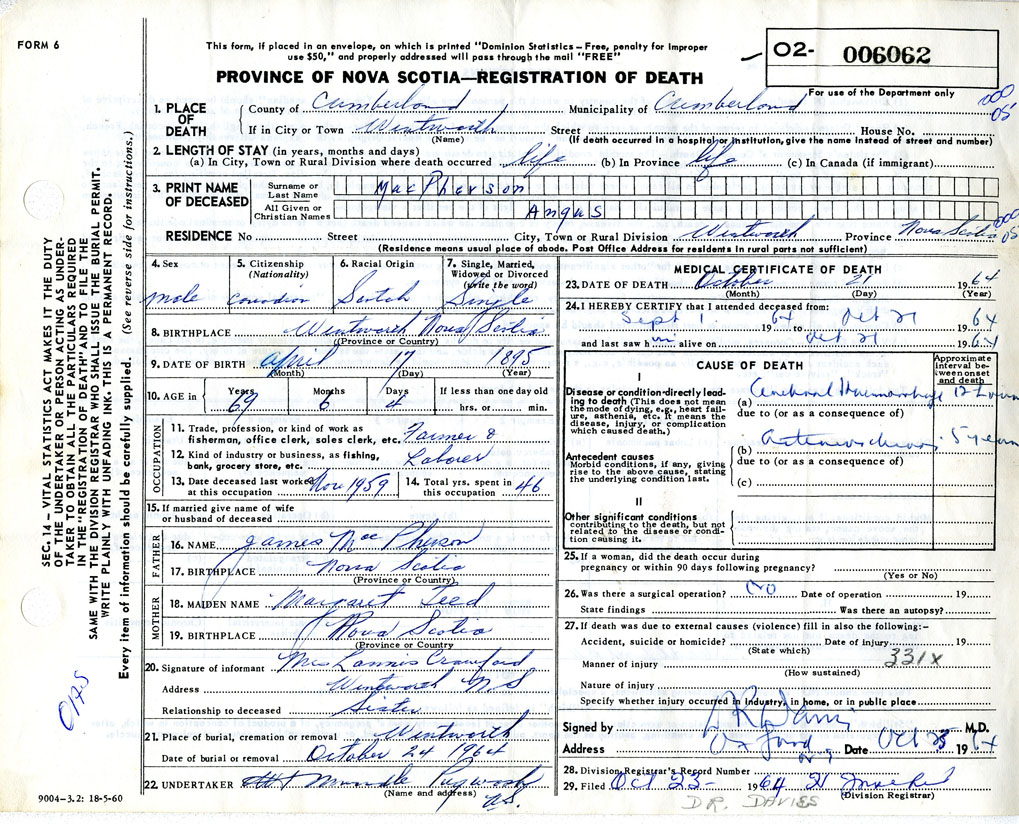 FORM 6
This form, if placed in an envelope, on which is printed "Dominion Statistics – Free, penalty for improper
use $50," and properly addressed will pass through the mail "FREE"
PROVINCE OF NOVA SCOTIA—REGISTRATION OF DEATH
02- 006062
For use of the Department only
000
05
1. PLACE OF DEATH
County of Cumberland Municipality of Cumberland
If in City or Town Wentworth Street House No.
(Name) (If death occurred in a hospital or institution, give the name instead of street and number)
2. LENGTH OF STAY (in years, months and days)
(a) In City, Town or Rural Division where death occurred life (b) In Province life (c) In Canada (if immigrant)
3. PRINT NAME OF DECEASED
Surname or Last Name MacPherson
All Given or Christian Names Angus
000
05
RESIDENCE No Street City, Town or Rural Division Wentworth Province Nova Scotia
(Residence means usual place of abode. Post Office Address for residents in rural parts not sufficient)
4. Sex 5. Citizenship (Nationality) 6. Racial Origin 7. Single, Married, Widowed or Divorced (write the word)
male Canadian Scotch Single
8. BIRTHPLACE Wentworth Nova Scotia
(Province or Country)
9. DATE OF BIRTH April 17 1895
(Month) (Day) (Year)
10. AGE in Years Months Days If less than one day old
69 6 4 hrs. or min.
OCCUPATION
11. Trade, profession, or kind of work as
fisherman, office clerk, sales clerk, etc. Farmer &
12. Kind of industry or business, as fishing,
bank, grocery store, etc. Laborer
13. Date deceased last worked at this occupation Nov 1959 14. Total yrs. spent in this occupation 46
15. If married give name of wife
or husband of deceased
FATHER
16. NAME James MacPherson
17. BIRTHPLACE Nova Scotia
(Province or Country)
MOTHER
18. MAIDEN NAME Margaret Teed
19. BIRTHPLACE Nova Scotia
(Province or Country
20. Signature of informant Mrs Lannis Crawford
Address Wentworth NS
Relationship to deceased Sister
21. Place of burial, cremation or removal Wentworth
Date of burial or removal October 24 1964
22. UNDERTAKER Pugwash
(Name and address) N.S.
9004-3.2: 18-5-60
MEDICAL CERTIFICATE OF DEATH
23. DATE OF DEATH October 21 1964
(Month) (Day) (Year)
24. I HEREBY CERTIFY that I attended deceased from:
Sept 1 1964 to Oct 21 1964
and last saw him alive on Oct 21 1964
CAUSE OF DEATH
Approximate interval between onset and death
I
Disease or condition directly leading to death (This does not mean the mode of dying, e.g., heart failure, asthenia, etc. It means the disease, injury, or complication which caused death.)
(a) Cerebral Haemorrhage 12 hours
due to (or as a consequence of)
(b) Arteriosclerosis 5 years
due to (or as a consequence of)
(c)
Antecedent causes
Morbid conditions, if any, giving rise to the above cause, stating the underlying condition last.
II
Other significant conditions
contributing to the death, but not related to the disease or condition causing it.
25. If a woman, did the death occur during
pregnancy or within 90 days following pregnancy?
(Yes or No)
26. Was there a surgical operation? No Date of operation 19
State findings Was there an autopsy?
27. If death was due to external causes (violence) fill in also the following:–
Accident, suicide or homicide? Date of injury 19
(State which)
331X
Manner of injury
(How sustained)
Nature of injury
Specify whether injury occurred in industry, in home, or in public place
Signed by M.D.
Address Oxford Date Oct 23 1964
28. Division Registrar's Record Number
29. Filed Oct 23- 1964
(Division Registrar)
DR. DAVIES
SEC. 14 – VITAL STATISTICS ACT MAKES IT THE DUTY
OF THE UNDERTAKER OR PERSON ACTING AS UNDER-
TAKER TO OBTAIN ALL THE PARTICULARS REQUIRED
IN THE "REGISTRATION OF DEATH" AND TO FILE THE
SAME WITH THE DIVISION REGISTRAR WHO SHALL ISSUE THE BURIAL PERMIT.
WRITE PLAINLY WITH UNFADING INK. THIS IS A PERMANENT RECORD.
Every item of information should be carefully supplied. (See reverse side for instructions.)